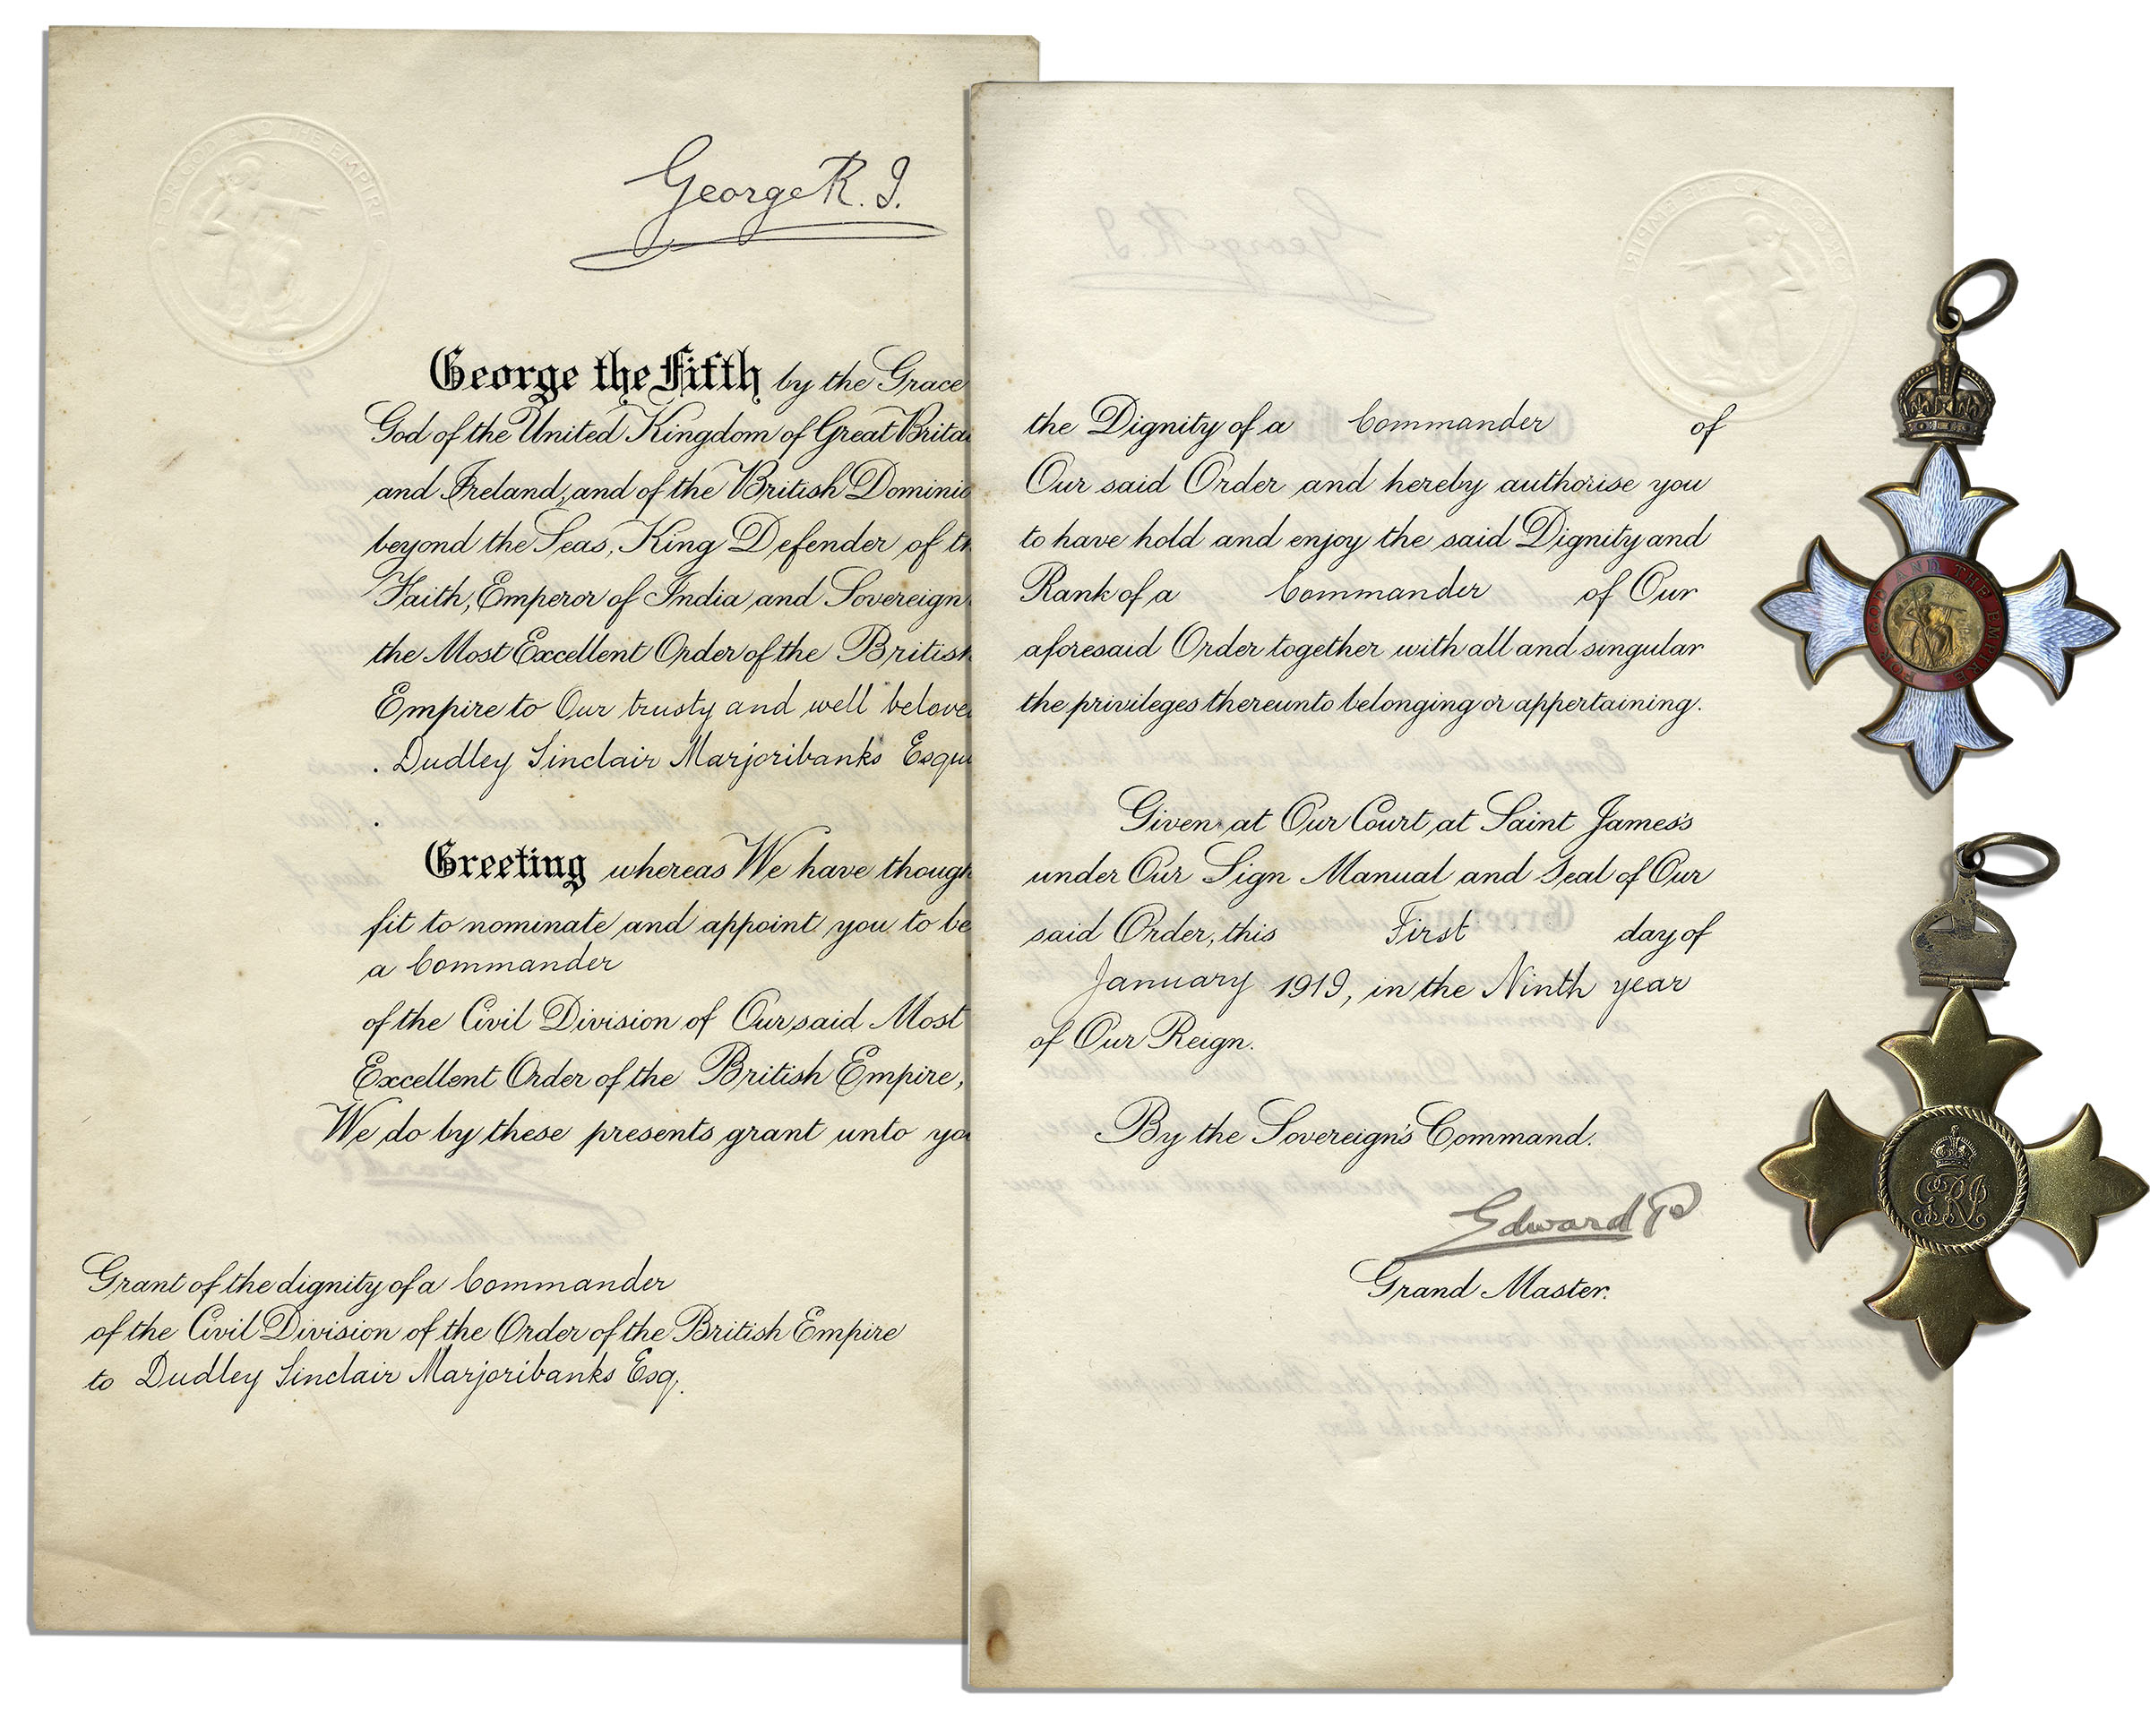 FOR GOD AND THE EMPIRE
George R. I.
George the Fifth by the Grace
God of the United Kingdom of Great Britai
and Ireland, and of the British Dominio
beyond the Seas, King Defender of th
Faith, Emperor of India and Sovereign
the Most Excellent Order of the British
Empire to Our trusty and well belove
Dudley Sinclair Marjoribanks Esqui
Greeting whereas We have though
fit to nominate and appoint you to be
a Commander
of the Civil Division of Our said Most
Excellent Order of the British Empire,
We do by these presents grant unto yo
Grant of the dignity of a Commander
of the Civil Division of the Order of the British Empire
to Dudley Sinclair Marjoribanks Esq.
the Dignity of a Commander of
Our said Order and hereby authorise you
to have hold and enjoy the said Dignity and
Rank of a Commander of Our
aforesaid Order together with all and singular
the privileges thereunto belonging or appertaining.
Given at Our Court at Saint James's
under Our Sign Manual and Seal of Our
said Order, this First day of
January 1919, in the Ninth year
of Our Reign.
By the Sovereign's Command.
Edward P
Grand Master.
FOR GOD AND THE EMPIRE
GRI